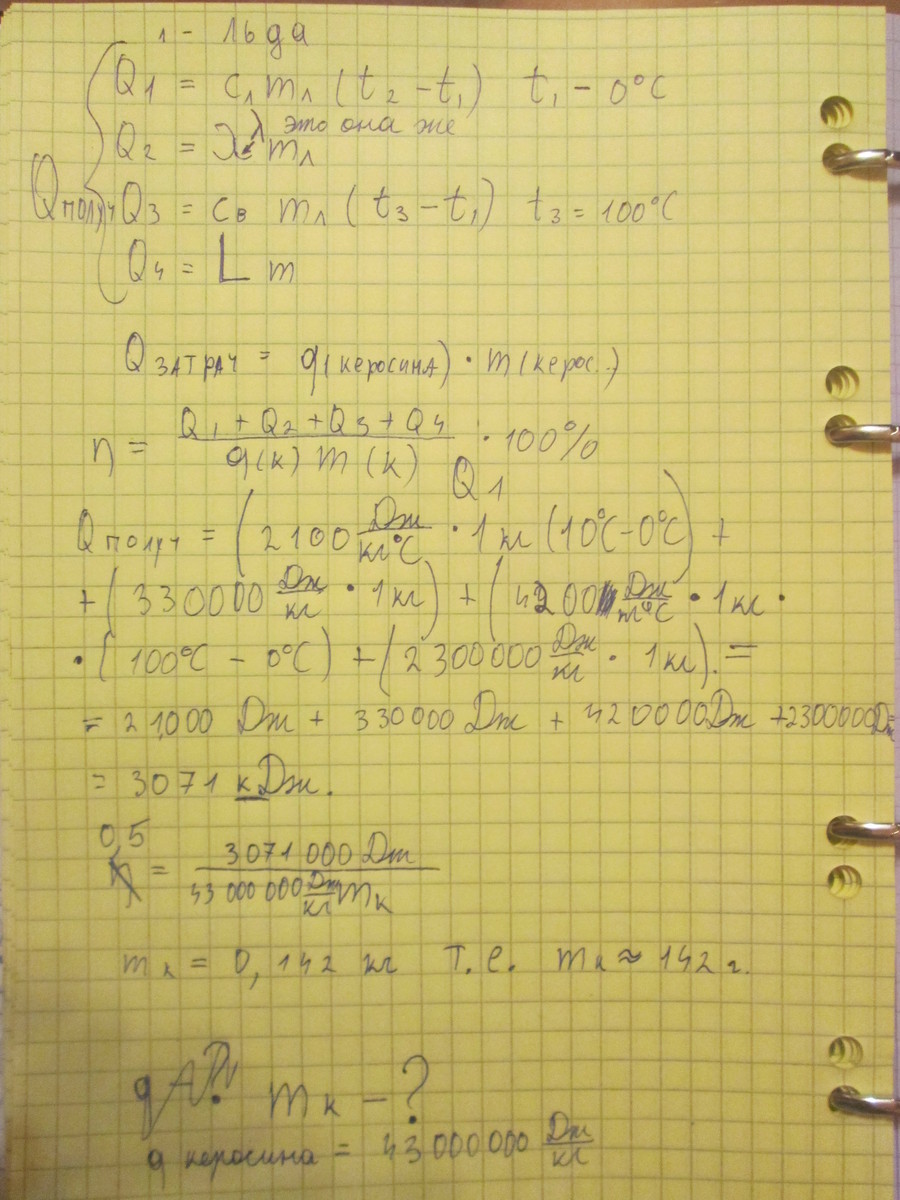 л - льда
Q1 = cл mл (t2 - t1) t1 - 0°C
λ это она же
Q2 = λ mл
Qполуч Q3 = cв mл (t3 - t1) t3 = 100°C
Q4 = L m
Qзатрач = q(керосина) · m(керос..)
η = Q1 + Q2 + Q3 + Q4 / q(к) m(к) · 100%
Q1
Qполуч = (2100 Дж/кг°C · 1 кг (10°C - 0°C) +
+ (330000 Дж/кг · 1 кг) + (4200 Дж/кг°C · 1 кг ·
· (100°C - 0°C) + (2300000 Дж/кг · 1 кг). =
= 21000 Дж + 330000 Дж + 420000 Дж + 2300000 Дж
= 3071 кДж.
0,5
η = 3071 000 Дж / 43 000 000 Дж/кг mк
mк = 0,142 кг т.е. mк ≈ 142 г.
mк - ?
q керосина = 43000000 Дж/кг